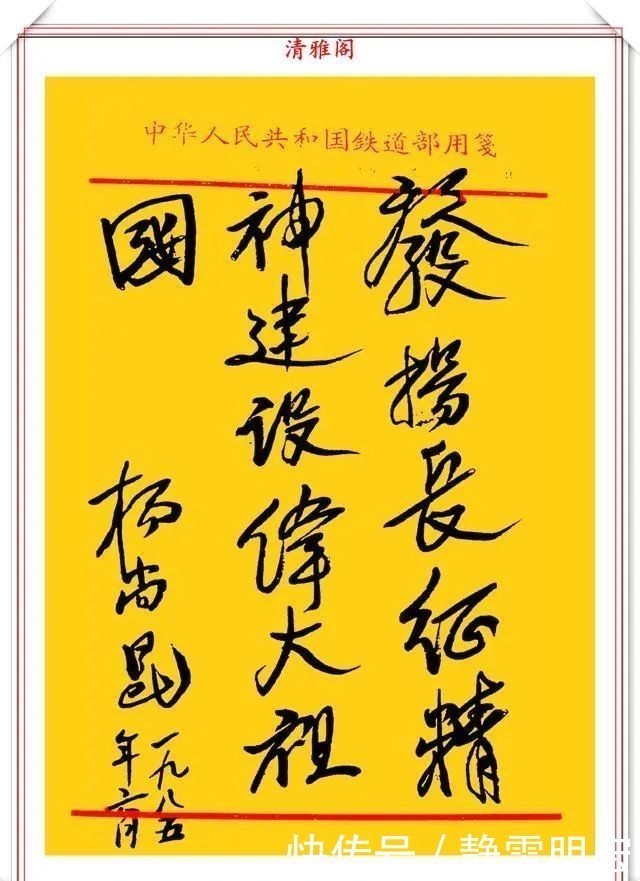 清雅阁
中华人民共和国鉄道部用箋
發揚長征精
神建设偉大祖
國
杨尚昆
一九八五
年六月
快传号 / 静